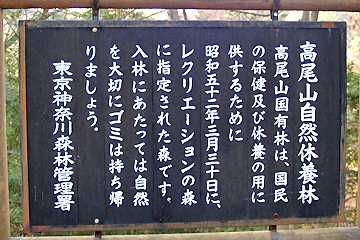 高尾山自然休養林
高尾山国有林は、国民
の保健及び休養の用に
供するために
昭和五十二年三月三十日に、
レクリエーションの森
に指定された森です。
入林にあたっては自然
を大切にゴミは持ち帰
りましょう。
東京神奈川森林管理署